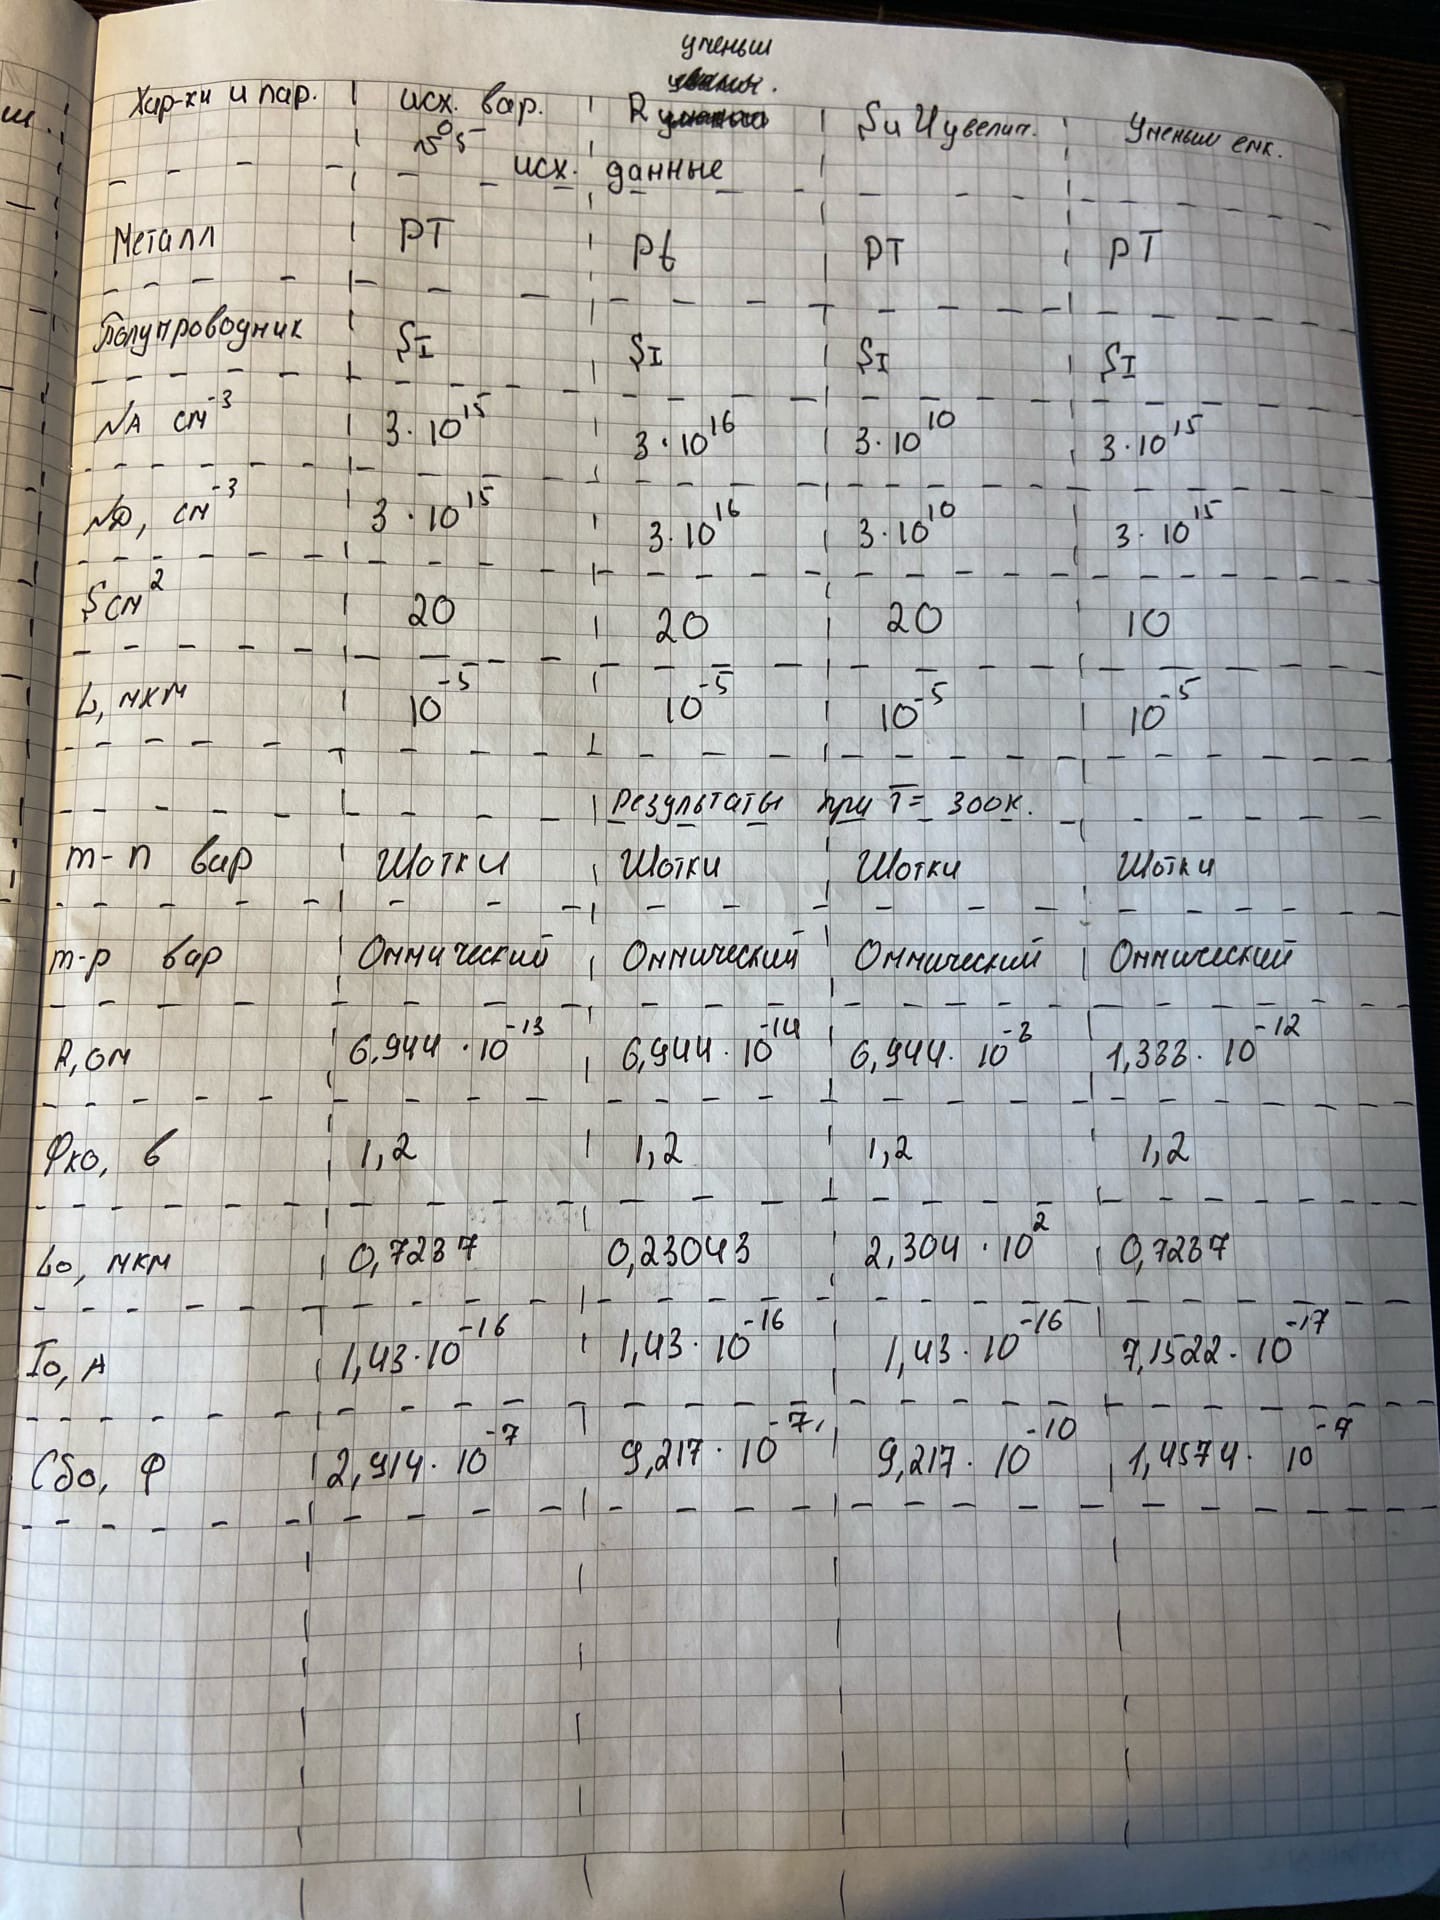 уменьш
Хар-ки и пар. исх. вар. R S и U увелич. Уменьш емк.
№5
исх. данные
Металл PT Pt PT PT
Полупроводник SI SI SI SI
NA см⁻³ 3·10¹⁵ 3·10¹⁶ 3·10¹⁰ 3·10¹⁵
ND, см⁻³ 3·10¹⁵ 3·10¹⁶ 3·10¹⁰ 3·10¹⁵
S см² 20 20 20 10
L, мкм 10⁻⁵ 10⁻⁵ 10⁻⁵ 10⁻⁵
Результаты при T= 300к.
m-n вар Шотки Шотки Шотки Шотки
m-p вар Оммический Оммический Оммический Оммический
R, ом 6,944·10⁻¹³ 6,944·10⁻¹⁴ 6,944·10⁻⁸ 1,388·10⁻¹²
φко, в 1,2 1,2 1,2 1,2
Lo, мкм 0,7287 0,23043 2,304·10² 0,7287
Io, А 1,43·10⁻¹⁶ 1,43·10⁻¹⁶ 1,43·10⁻¹⁶ 7,1522·10⁻¹⁷
Сбо, Ф 2,914·10⁻⁷ 9,217·10⁻⁷ 9,217·10⁻¹⁰ 1,4574·10⁻⁷